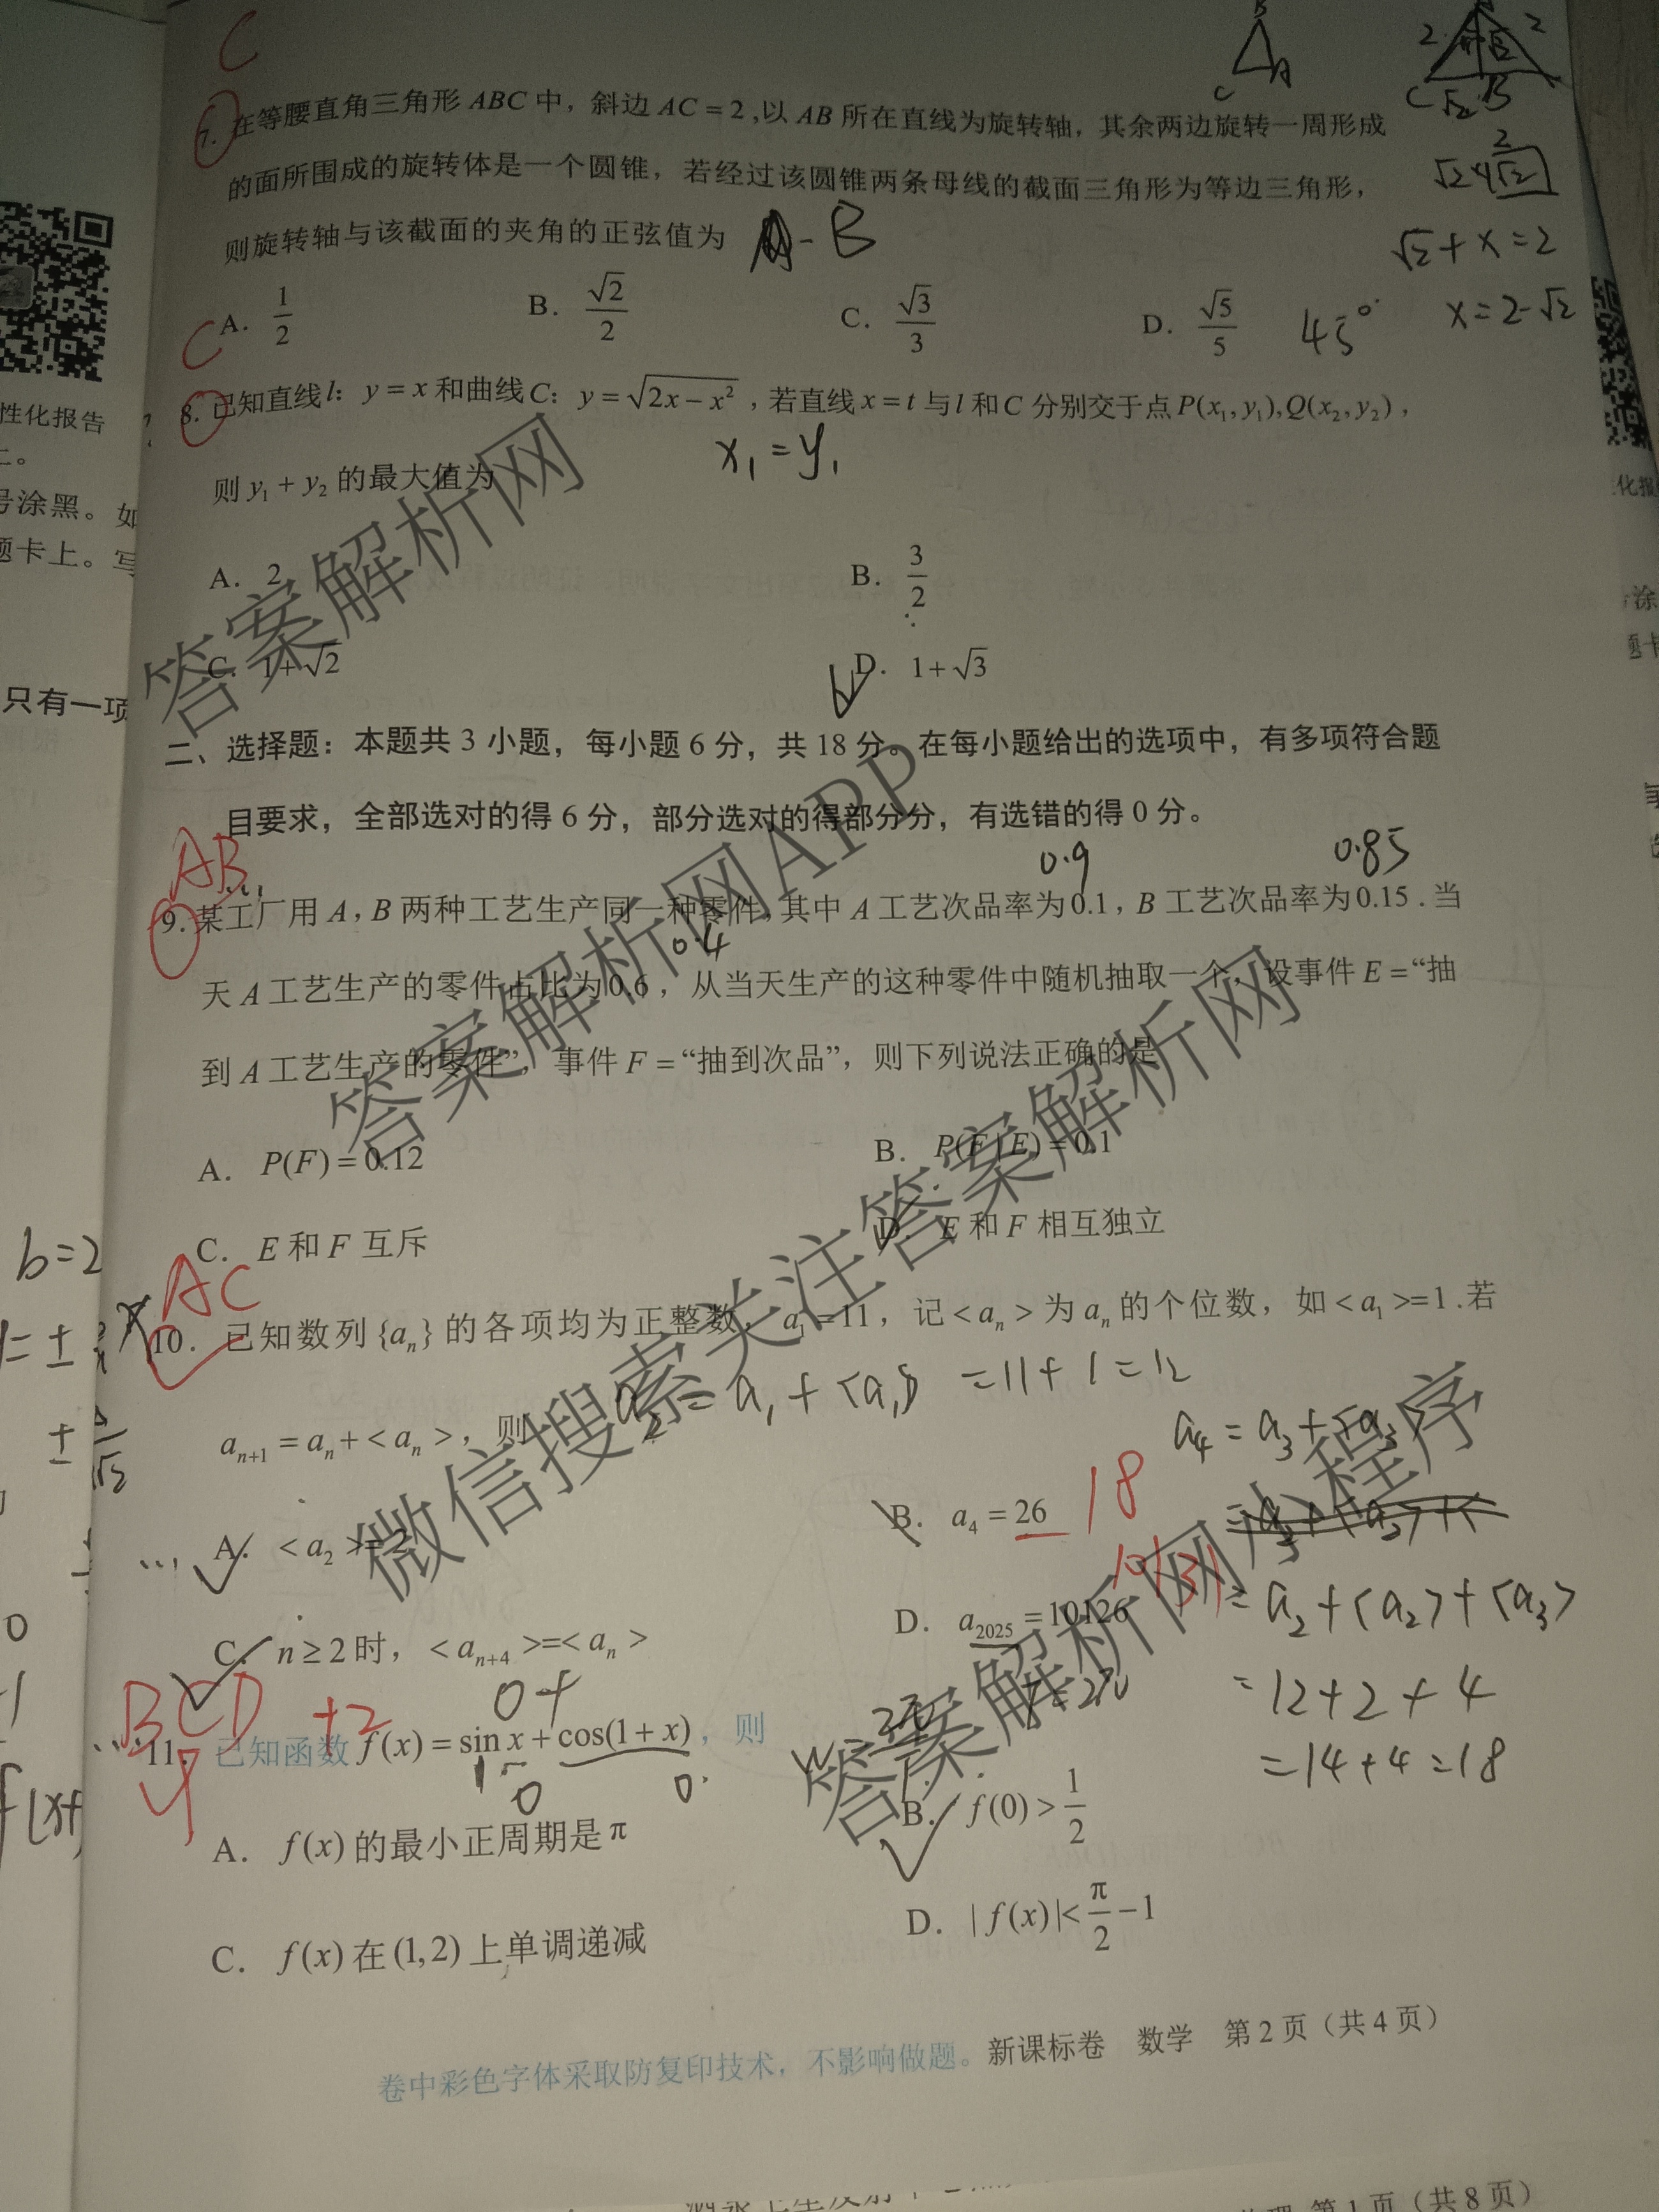 C
7. 在等腰直角三角形 ABC 中，斜边 AC = 2 ,以 AB 所在直线为旋转轴，其余两边旋转一周形成
的面所围成的旋转体是一个圆锥，若经过该圆锥两条母线的截面三角形为等边三角形，
则旋转轴与该截面的夹角的正弦值为
B
√2 + x = 2
x = 2-√2
45°
A. 1/2 B. √2/2 C. √3/3 D. √5/5
C
8. 已知直线 l: y = x 和曲线 C: y = √(2x − x²) ，若直线 x = t 与 l 和 C 分别交于点 P(x₁, y₁), Q(x₂, y₂) ，
x₁ = y₁
则 y₁ + y₂ 的最大值为
A. 2 B. 3/2
C. 1+√2 D. 1+√3
二、选择题：本题共 3 小题，每小题 6 分，共 18 分。在每小题给出的选项中，有多项符合题
目要求，全部选对的得 6 分，部分选对的得部分分，有选错的得 0 分。
AB
0.9 0.85
9. 某工厂用 A, B 两种工艺生产同一种零件, 其中 A 工艺次品率为 0.1, B 工艺次品率为 0.15 . 当
0.4
天 A 工艺生产的零件占比为 0.6 ，从当天生产的这种零件中随机抽取一个，设事件 E = “抽
到 A 工艺生产的零件”，事件 F = “抽到次品”，则下列说法正确的是
A. P(F) = 0.12 B. P(F | E) = 0.1
C. E 和 F 互斥 D. E 和 F 相互独立
AC
10. 已知数列 {aₙ} 的各项均为正整数，a₁ = 11 ，记 < aₙ > 为 aₙ 的个位数，如 < a₁ >=1 .若
a₂ = a₁ + <a₁> = 11 + 1 = 12
aₙ₊₁ = aₙ + < aₙ > ，则
a₄ = a₃ + <a₃>
A. < a₂ >= 2 B. a₄ = 26
18
10131
= a₂ + <a₂> + <a₃>
C. n ≥ 2 时，< aₙ₊₄ >=< aₙ > D. a₂₀₂₅ = 10126
= 12 + 2 + 4
= 14 + 4 = 18
BCD +2
11. 已知函数 f(x) = sin x + cos(1 + x) ，则
A. f(x) 的最小正周期是 π B. f(0) > 1/2
C. f(x) 在 (1, 2) 上单调递减 D. | f(x) |< π/2 − 1
卷中彩色字体采取防复印技术，不影响做题。新课标卷 数学 第 2 页（共 4 页）
第 1 页（共 8 页）
性化报告
号涂黑。如
题卡上。写
只有一项
b=2
答案解析网
答案解析网APP
微信搜索关注答案解析网
答案解析网小程序